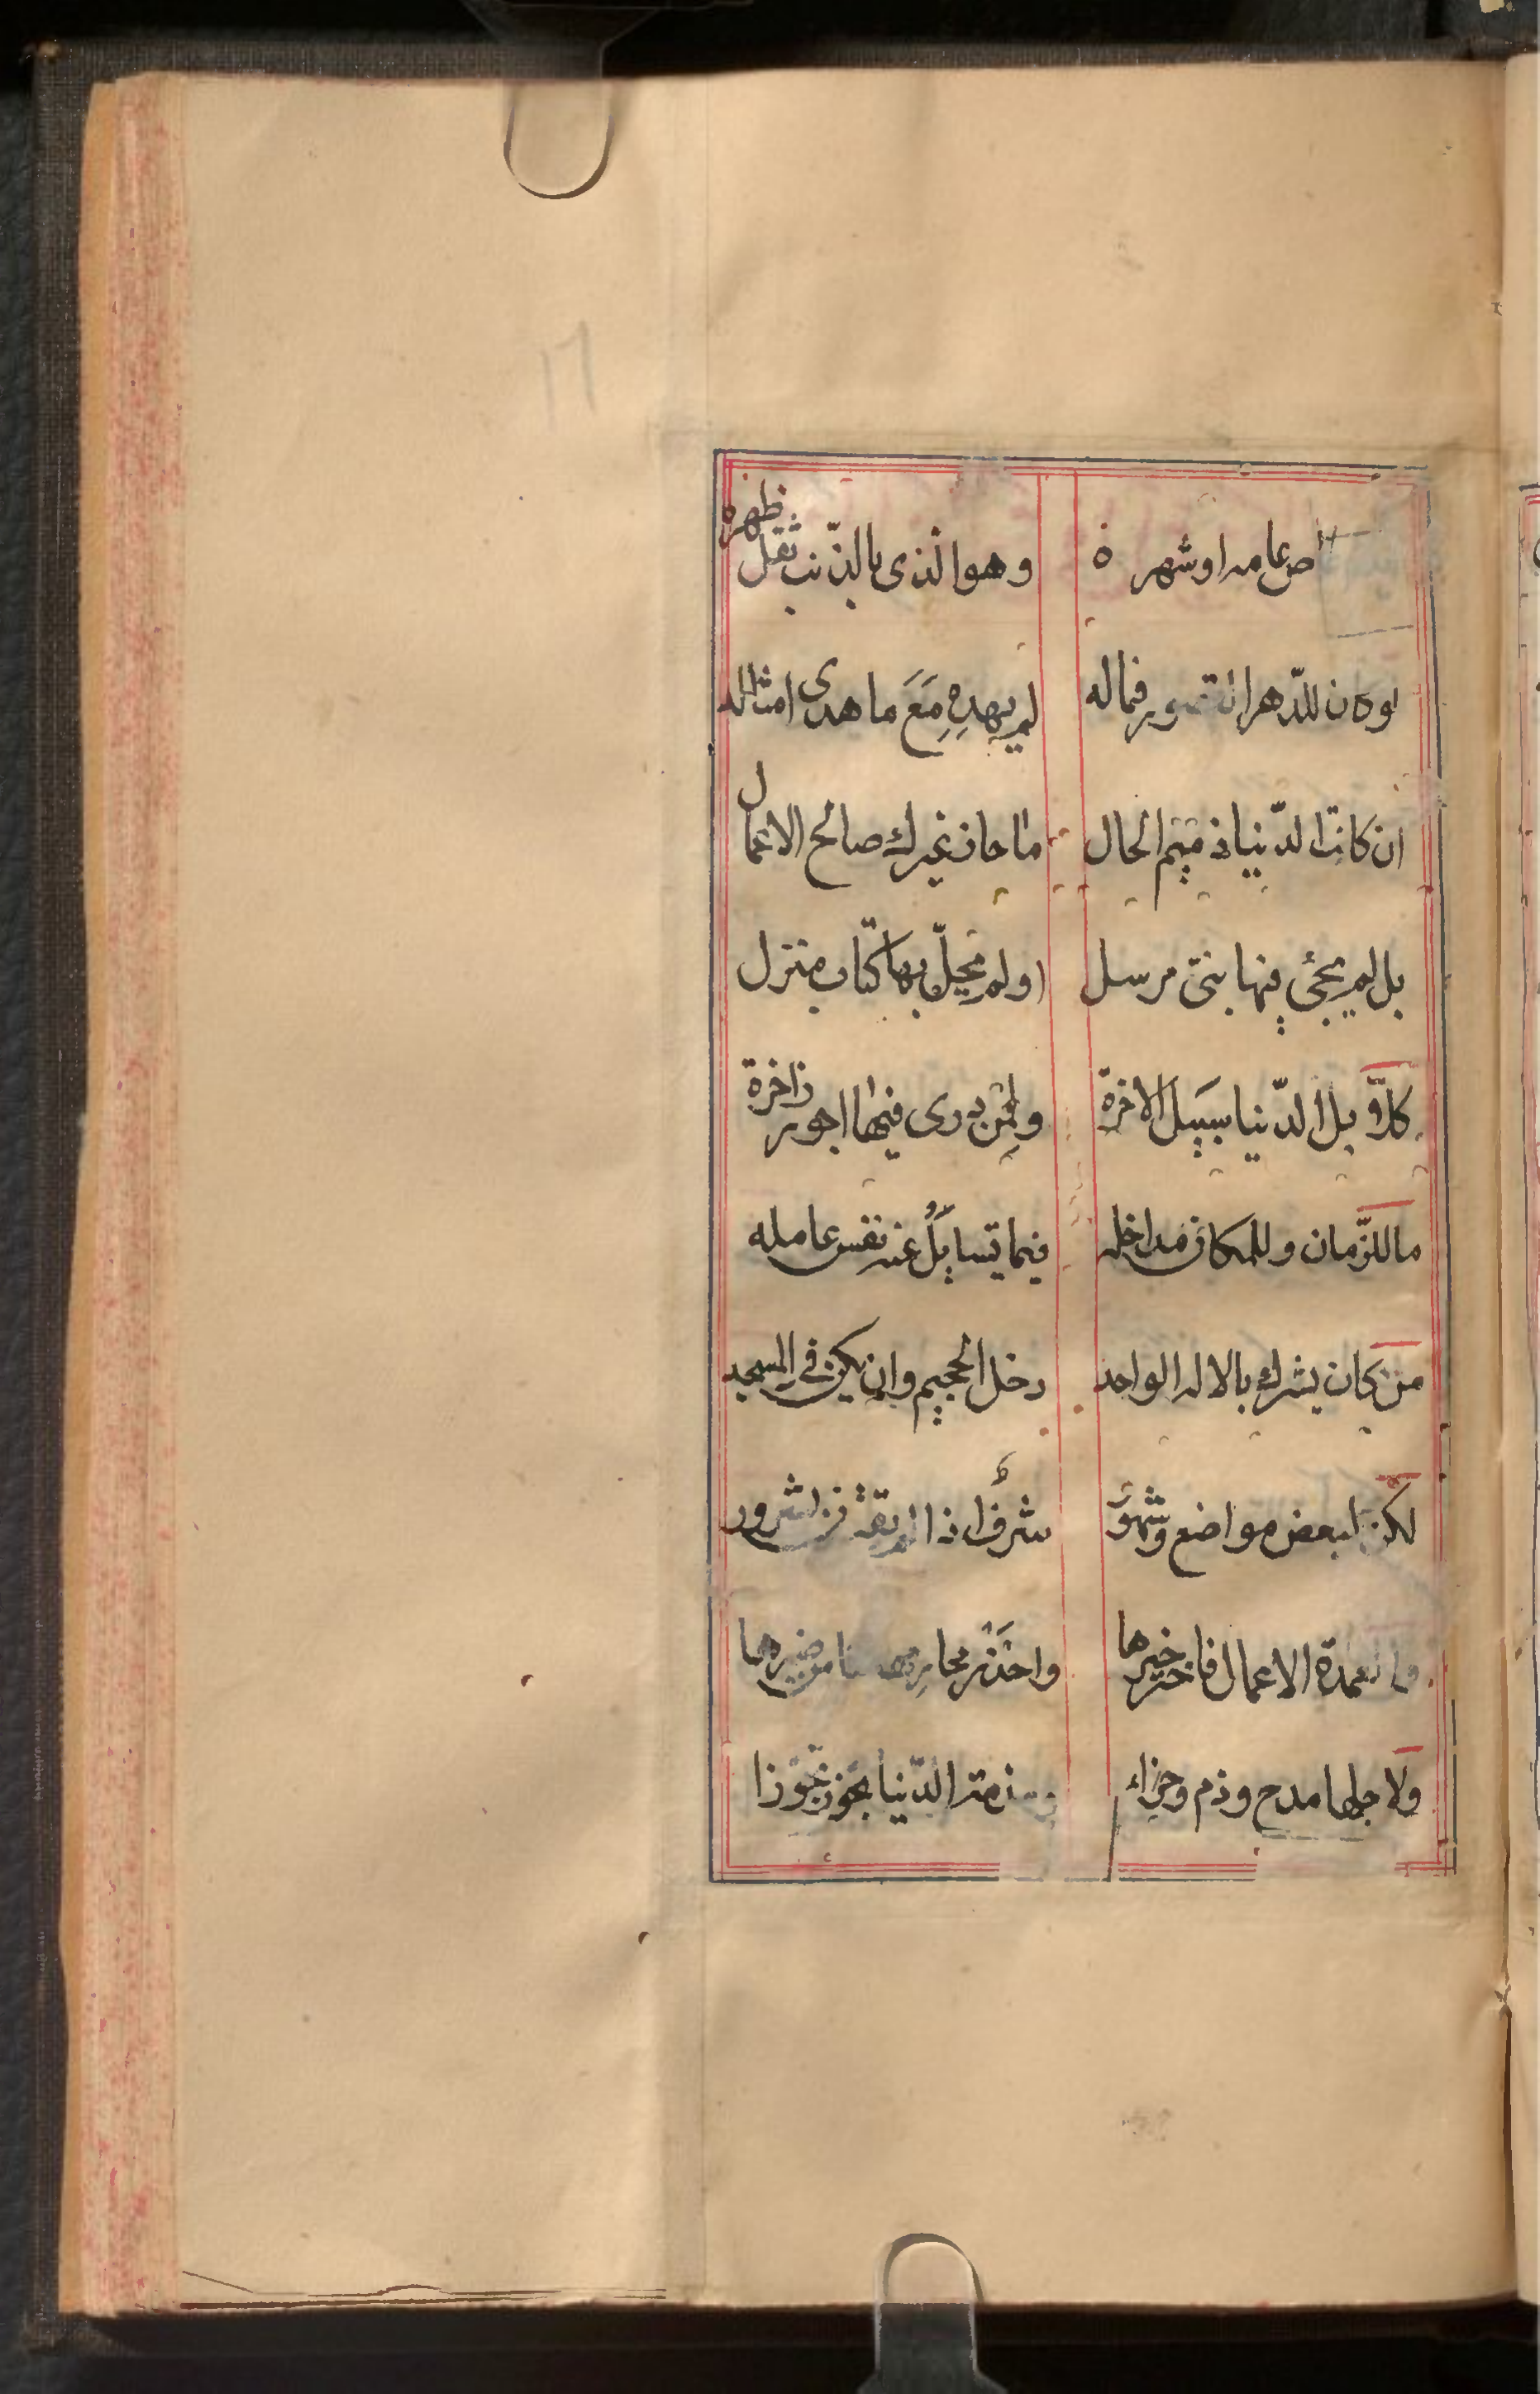 عامه او شهره وهو الذى بالذنب ثقل ظهره
للدهر فماله لم يهدِهِ مَعَ ما هدى امثاله
ان كانت الدّنيا ذميم الحال ما حاز غيرك صالح الاعمال
بل لم يجئ فيها بنىّ مرسل او لم يحلّ بها كتاب منزل
كلاّ بل الدّنيا سبيل الاخرة ولمن درى فيها اجور ذاخرة
ما للزّمان وللمكان مداخله فيما تسايلُ عنه نفس عامله
من كان يشرك بالاله الواحد دخل الجحيم وان يكن فى المسجد
لكن لبعض مواضع وشهور شرف اذا من شرور
الاعمال خيرها واحذر من ضيرها
ولاجلها مدح وذم وجزاء الدّنيا تجوز تجوّزا